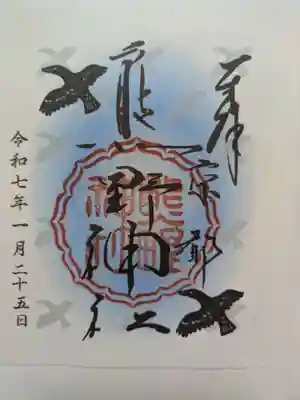 奉拝
京都
熊野神社
令和七年一月二十五日